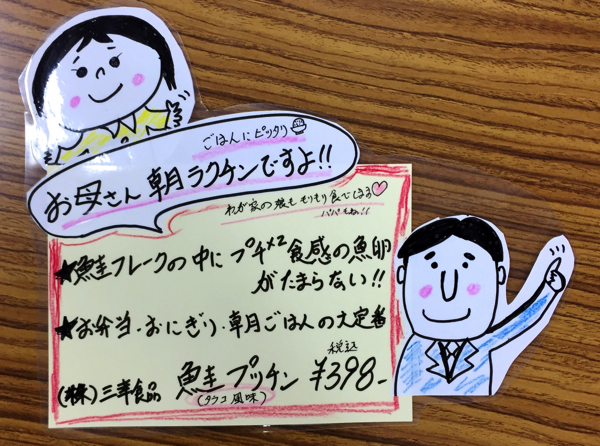 ごはんにピッタリ
お母さん 朝ラクチンですよ!!
わが家の娘ももりもり食べてます♡
パパもね!!
★鮭フレークの中にプチ×2食感の魚卵
がたまらない!!
★お弁当・おにぎり・朝ごはんの大定番
税込
(株)三幸食品 鮭プッチン ¥398-
(タラコ風味)